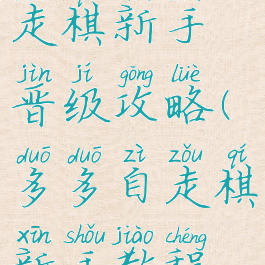 走棋新手
jìn jí gōng lüè
晋级攻略(
duō duō zì zǒu qí
多多自走棋
xīn shǒu jiào chéng
新手教程